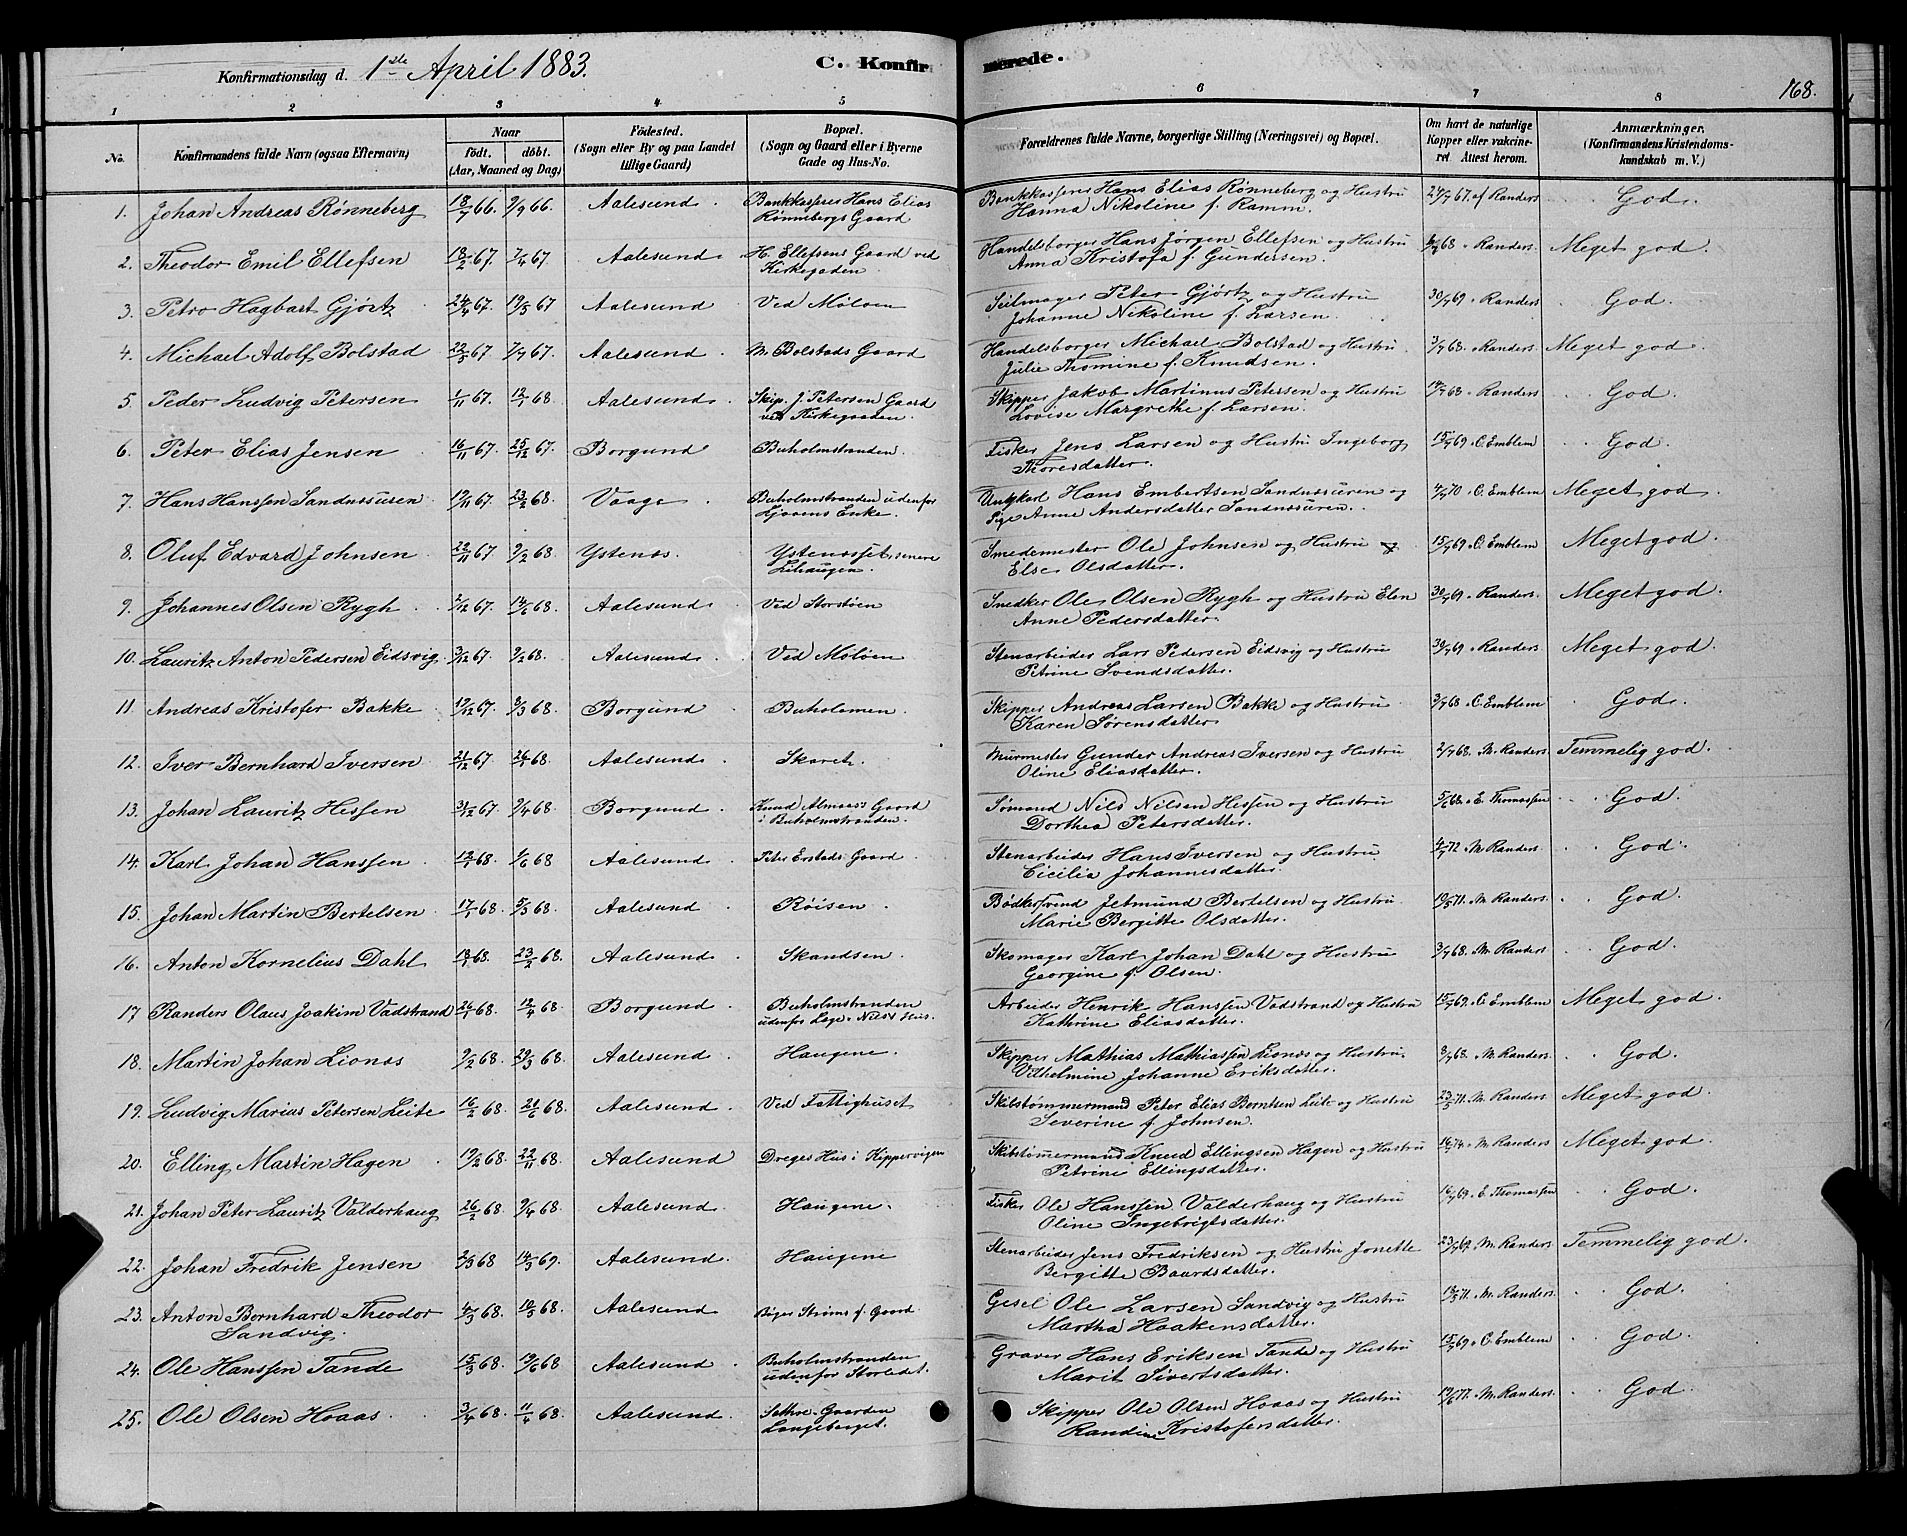 Konfirmationsdag d. 1ste April 1883. C. Konfirmerede. 168.
1 2 3 4 5 6 7 8
No. Konfirmandens fulde Navn (ogsaa Efternavn) Naar født. døbt. (Aar, Maaned og Dag) Fødested. (Sogn eller By og paa Landet tillige Gaard) Bopæl. (Sogn og Gaard eller i Byerne Gade og Hus-No. Forældrenes fulde Navne, borgerlige Stilling (Næringsvei) og Bopæl. Om havt de naturlige Kopper eller vakcineret. Attest herom. Anmærkninger. (Konfirmandens Kristendomskundskab m. V.)
1. Johan Andreas Rønneberg 18/7 66. 9/9 66 Aalesund Bankkasserer Hans Elias Rønnebergs Gaard Bankkasserer Hans Elias Rønneberg og Hustru Hanna Nikoline f. Ramm. 24/7 67. af Randers God.
2. Theodor Emil Ellefsen 18/2 67. 7/4 67. Aalesund H. Ellefsens Gaard ved Kirkegaden Handelsborger Hans Jørgen Ellefsen og Hustru Anna Kristofa f. Gundersen. 68 " Randers Meget god.
3. Petro Hagbart Gjørtz 24/4 67. 19/5 67 Aalesund Ved Moloen Seilmager Peter Gjørtz og Hustru Johanne Nikoline f. Larsen. 30/7 69 " Randers God.
4. Michael Adolf Bolstad 22/5 67. 7/7 67. Aalesund M. Bolstads Gaard Handelsborger Michael Bolstad og Hustru Julie Thomine f. Knudsen. 3/7 68. " Randers Meget god.
5. Peder Ludvig Petersen 1/11 67. 12/1 68. Aalesund Skip. J. Petersen Gaard ved Kirkegaden. Skipper Jakob Martinus Petersen og Hustru Lovise Margrethe f. Larsen. 14/7 68 " Randers God.
6. Peter Elias Jensen 16/11 67. 25/12 67. Borgund Buholmstranden. Fisker Jens Larsen og Hustru Ingeborg Thoresdatter. 15/7 69 " C. Emblem God.
7. Hans Hanssen Sandnæsusen 19/11 67. 23/2 68. Vaage Buholmstranden udenfor Gjøoens Enke. Ungkarl Hans Embertsen Sandnæsuren og Pige Anne Andersdatter Sandnæsuren. 4/7 70 " C. Emblem Meget god.
8. Oluf Edvard Johnsen 22/11 67. 9/2 68. Ystenæs. Ystenæsset, senere Lihaugen. Smedemester Ole Johnsen og Hustru Else Olsdatter. 15/7 69 " C. Emblem Meget god.
9. Johannes Olsen Rygh 2/12 67. 14/6 68. Aalesund Ved Storstøen Snedker Ole Olsen Rygh og Hustru Elen Anne Pedersdatter. 30/7 69 " Randers. Meget god.
10. Lauritz Anton Pedersen Eidsvig 3/12 67. 9/2 68. Aalesund Ved Moloen Stenarbeider Lars Pedersen Eidsvig og Hustru Petrine Svendsdatter. 30/7 69 " Randers. Meget god.
11. Andreas Kristofer Bakke 19/12 67. 8/3 68. Borgund Buholmen. Skipper Andreas Larsen Bakke og Hustru Karen Sørensdatter 3/7 68 " C. Emblem God.
12. Iver Bernhard Iversen 21/12 67 26/1 68. Aalesund Skaret. Murmester Gunder Andreas Iversen og Hustru Oline Eliasdatter. 2/7 68. " M. Randers. Temmelig god.
13. Johan Lauritz Hessen 31/12 67. 9/4 68. Borgund Knud Almaas's Gaard i Buholmstranden. Sømand Nils Nilsen Hessen og Hustru Dorthea Petersdatter. 5/6 68. " E. Thomassen God.
14. Karl Johan Hanssen 12/1 68. 1/6 68 Aalesund Peter Erstads Gaard. Stenarbeider Hans Iversen og Hustru Cicilia Johannesdatter. 4/7 72 " M. Randers. God.
15. Johan Martin Bertelsen 17/1 68. 8/3 68. Aalesund Røisen. Bødkersvend Jetmund Bertelsen og Hustru Marie Bergitte Olsdatter. 19/5 71. " M. Randers. God.
16. Anton Kornelius Dahl 18/1 68. 23/2 68. Aalesund Skandsen. Skomager Karl Johan Dahl og Hustru Georgine f. Olsen. 3/7 68. " M. Randers God.
17. Randers Olaus Joakim Vadstrand 26/1 68. 12/4 68. Borgund Buholmstranden udenfor Lage-Nils's Hus. Arbeider Henrik Hanssen Vadstrand og Hustru Kathrine Eliasdatter. 15/7 69. " C. Emblem Meget god.
18. Martin Johan Lionæs 9/2 68. 29/3 68. Aalesund Haugene. Skipper Mathias Mathiassen Lionæs og Hustru Vilhelmine Johanne Eriksdatter. 8/7 68. " M. Randers. God.
19. Ludvig Marius Petersen Leite 16/2 68. 21/6 68. Aalesund Ved Fattighuset Skibstømmermand Peter Elias Berntsen Leite og Hustru Severine f. Johnsen. 23/5 71. " M. Randers Meget god.
20. Elling Martin Hagen 19/2 68. 22/11 68. Aalesund Dreges Hus i Kippervigen Skibstømmermand Knud Ellingsen Hagen og Hustru Petrine Ellingsdatter. 74. " M. Randers Meget god.
21. Johan Peter Lauritz Valderhaug 26/2 68. 9/4 68. Aalesund Haugene. Fisker Ole Hanssen Valderhaug og Hustru Oline Ingebrigtsdatter. 16/7 69 " E. Thomassen God.
22. Johan Fredrik Jensen 2/3 68 14/3 69. Aalesund Haugene Stenarbeider Jens Fredriksen og Hustru Jonette Bergitte Baardsdatter. 23/7 69. " M. Randers. Temmelig god.
23. Anton Bernhard Theodor Sandvig. 4/3 68. 10/5 68. Aalesund Bøger Strøms f. Gaard. Gesel Ole Larsen Sandvig og Hustru Martha Haakensdatter. 19/5 71. " M. Randers. God.
24. Ole Hanssen Tande 15/3 68. 19/6 68 Aalesund Buholmstranden udenfor Storledet. Graver Hans Eriksen Tande og Hustru Marit Sivertsdatter. 15/7 69 " C. Emblem God.
25. Ole Olsen Hoaas 3/4 68. 11/4 68. Aalesund Sathre-Gaarden Langeberget. Skipper Ole Olsen Hoaas og Hustru Randine Kristofersdatter. 19/6 77. " M. Randers. God.